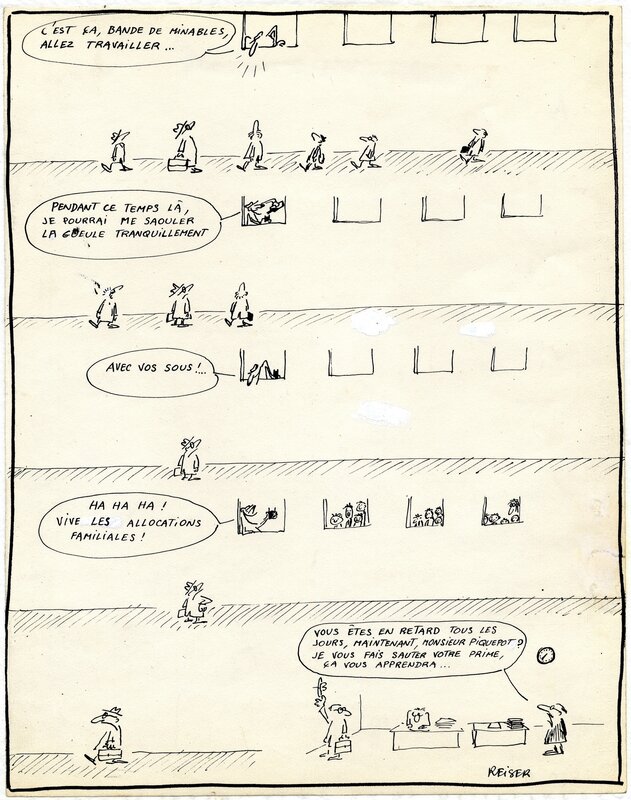 C'EST ÇA, BANDE DE MINABLES,
ALLEZ TRAVAILLER ...
PENDANT CE TEMPS LÀ,
JE POURRAI ME SAOULER
LA GUEULE TRANQUILLEMENT
AVEC VOS SOUS !...
HA HA HA !
VIVE LES ALLOCATIONS
FAMILIALES !
VOUS ÊTES EN RETARD TOUS LES
JOURS, MAINTENANT, MONSIEUR PIQUEPOT ?
JE VOUS FAIS SAUTER VOTRE PRIME,
ÇA VOUS APPRENDRA ...
REISER